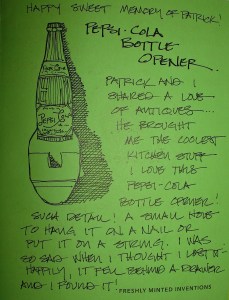 HAPPY SWEET MEMORY OF PATRICK!
PEPSI-COLA
BOTTLE
OPENER.
PATRICK AND I
SHARED A LOVE
OF ANTIQUES....
HE BROUGHT
ME THE COOLEST
KITCHEN STUFF
I LOVE THIS
PEPSI-COLA
BOTTLE OPENER!
SUCH DETAIL! A SMALL HOLE
TO HANG IT ON A NAIL OR
PUT IT ON A STRING. I WAS
SO SAD WHEN I THOUGHT I LOST IT
HAPPILY, IT FELL BEHIND A DRAWER
AND I FOUND IT!
FRESHLY MINTED INVENTIONS